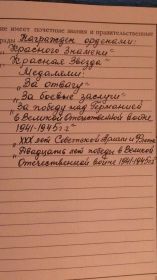 ие имеет почетные звания и правительственные
рады Награжден орденами:
„Красного Знамени"
„Красная Звезда"
Медалями:
„За отвагу"
„За боевые заслуги"
„За победу над Германией
в Великой Отечественной войне
1941-1945г.г."
„XXX лет Советской Армии и Флота
„Двадцать лет победы в Великой
Отечественной войне 1941-1945г.г"